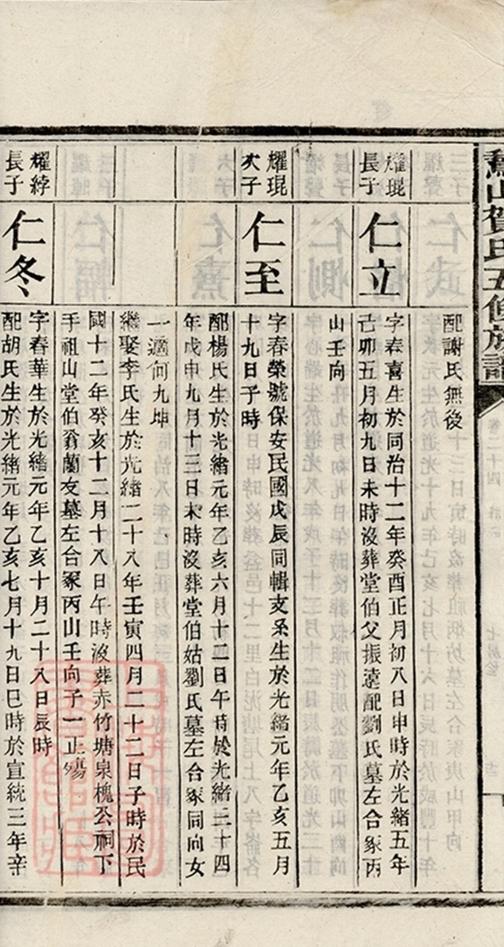 山賀氏五修族譜
配謝氏無後
耀琨長子
仁立
字春喜生於同治十二年癸酉正月初八日申時於光緒五年
己卯五月初九日未時沒葬堂伯父振遠配劉氏墓左合冢丙
山壬向
耀琨次子
仁至
字春榮號保安民國戊辰同輯支系生於光緒元年乙亥五月
十九日子時
配楊氏生於光緒元年乙亥六月十二日午時於光緒三十四
年戊申九月十三日未時沒葬堂伯姑劉氏墓左合冢同向女
一適何九坤
繼娶李氏生於光緒二十八年壬寅四月二十二日子時於民
國十二年癸亥十二月十八日午時沒葬赤竹塘泉槐公祠下
手祖山堂伯翁蘭友墓左合冢丙山壬向子一正殤
耀綍長子
仁冬
字春華生於光緒元年乙亥十月二十八日辰時
配胡氏生於光緒元年乙亥七月十九日巳時於宣統三年辛